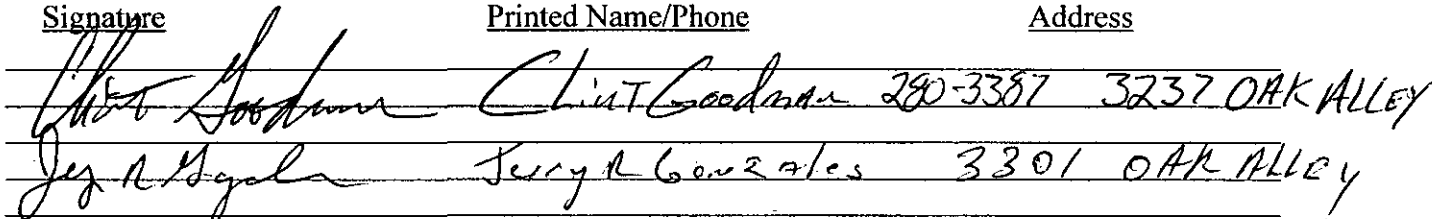 Signature Printed Name/Phone Address
Clint Goodman Clint Goodman 280-3387 3237 OAK ALLEY
Jerry R Gonzales Jerry R Gonzales 3301 OAK ALLEY